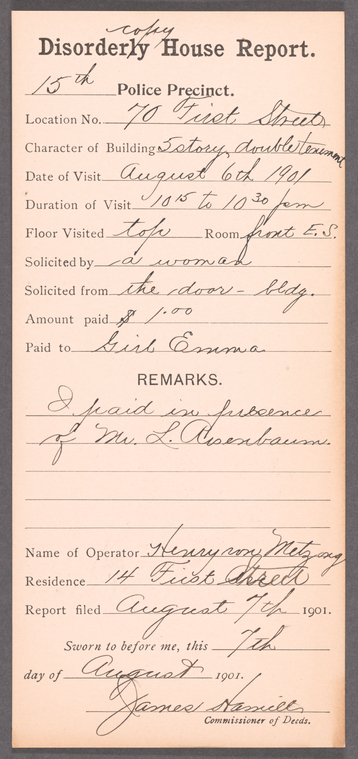 copy
Disorderly House Report.
15th Police Precinct.
Location No. 70 First Street
Character of Building 5 story double tenement
Date of Visit August 6th 1901
Duration of Visit 10 15 to 10 30 pm
Floor Visited top Room front E.S.
Solicited by a woman
Solicited from the door - bldg.
Amount paid $ 1.00
Paid to Girl Emma
REMARKS.
I paid in presence
of Mr. L. Rosenbaum.
Name of Operator Henry
Residence 14 First Street
Report filed August 7th 1901.
Sworn to before me, this 7th
day of August 1901.
James Hamill
Commissioner of Deeds.